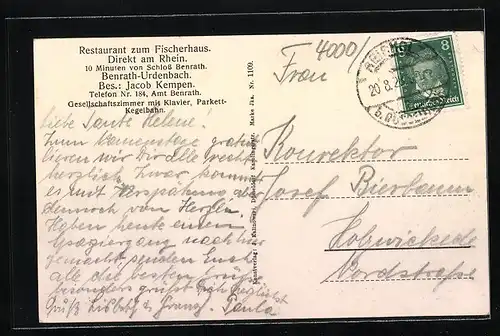 Restaurant zum Fischerhaus.
Direkt am Rhein.
10 Minuten von Schloß Benrath.
Benrath-Urdenbach.
Bes.: Jacob Kempen.
Telefon Nr. 184, Amt Benrath.
Gesellschaftszimmer mit Klavier, Parkett-
Kegelbahn.
Liebe Tante Helene!
Zum Namenstage gratu-
lieren wir Dir alle recht
herzlich. Zwar kommt
es mit Verspätung aber
dennoch von Herzen.
Haben heute einen
Spaziergang nach hier
gemacht, senden Euch
alle die besten Grüße
besonders grüßt Dich herzlichst
Paula
Nr. 1109.
4000/
Frau
Konrektor
Josef Bierbaum
Holzwickede
Nordstraße
20.8.
8
Deutsches Reich